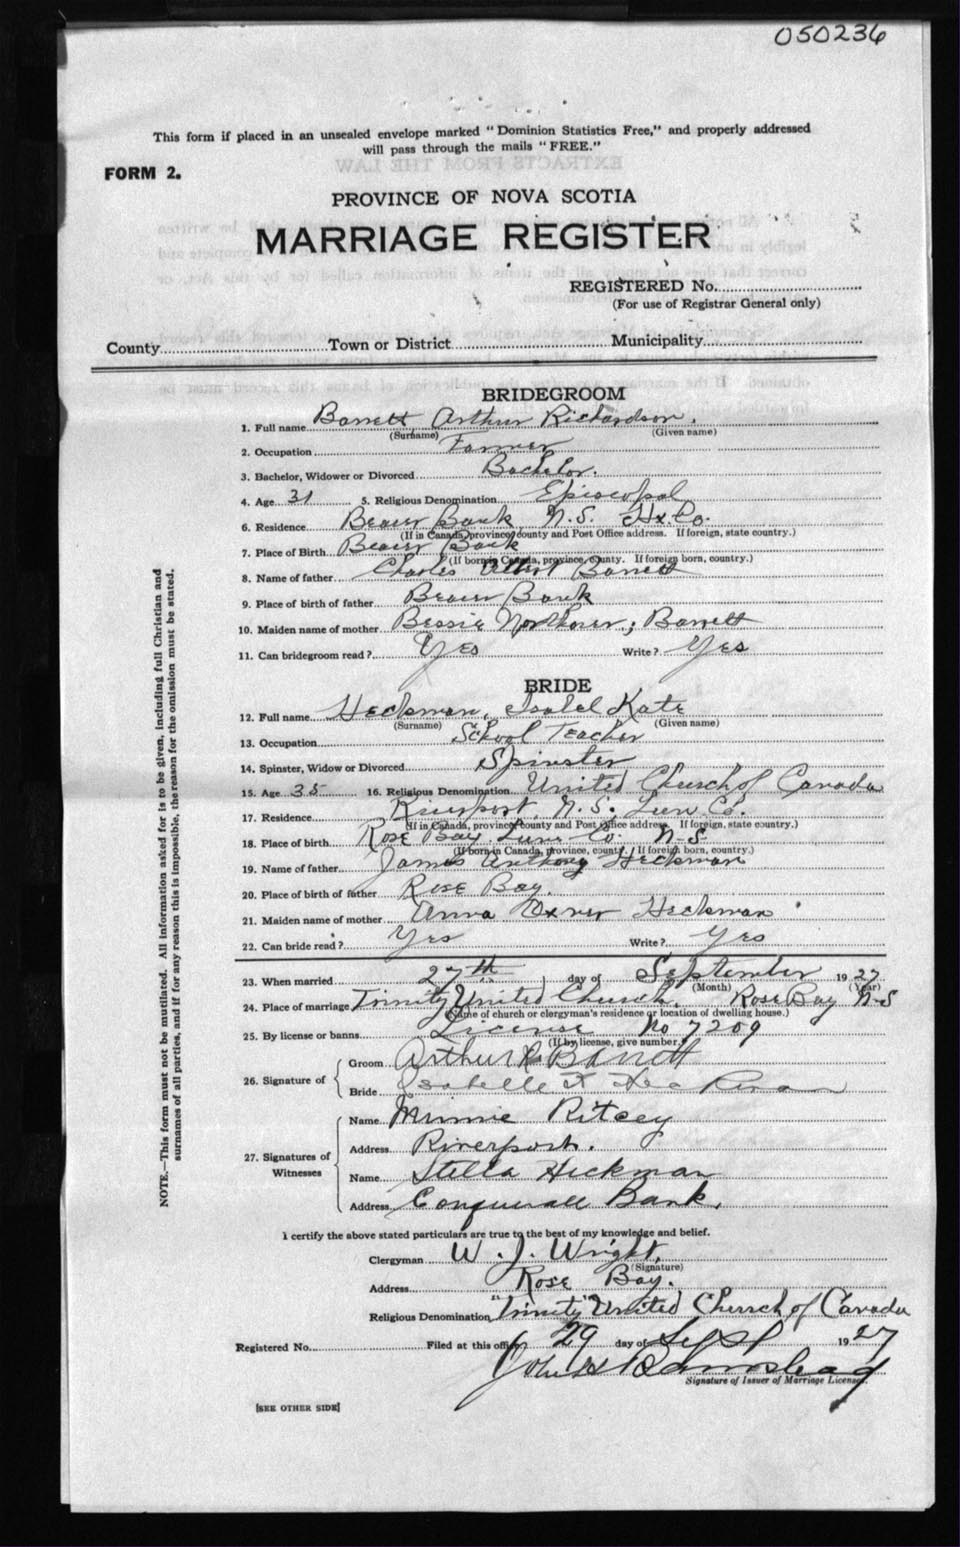 050236
This form if placed in an unsealed envelope marked " Dominion Statistics Free," and properly addressed
will pass through the mails " FREE."
FORM 2.
PROVINCE OF NOVA SCOTIA
MARRIAGE REGISTER
REGISTERED No.
(For use of Registrar General only)
County Town or District Municipality
BRIDEGROOM
1. Full name Barrett Arthur Richardson.
(Surname) (Given name)
2. Occupation Farmer
3. Bachelor, Widower or Divorced Bachelor.
4. Age 31 5. Religious Denomination Episcopal
6. Residence Beaver Bank, N.S. Hx. Co.
(If in Canada, province, county and Post Office address. If foreign, state country.)
7. Place of Birth Beaver Bank
(If born in Canada, province, county. If foreign born, country.)
8. Name of father Charles Albert Barrett
9. Place of birth of father Beaver Bank
10. Maiden name of mother Bessie Northover; Barrett
11. Can bridegroom read? Yes Write? Yes
BRIDE
12. Full name Heckman, Isabel Kate
(Surname) (Given name)
13. Occupation School Teacher
14. Spinster, Widow or Divorced Spinster
15. Age 35 16. Religious Denomination United Church of Canada
17. Residence Riverport, N.S. Lun Co.
(If in Canada, province, county and Post Office address. If foreign, state country.)
18. Place of birth Rose Bay Lun Co. N-S
(If born in Canada, province, county. If foreign born, country.)
19. Name of father James Anthony Heckman
20. Place of birth of father Rose Bay.
21. Maiden name of mother Anna Oxner Heckman
22. Can bride read? Yes Write? Yes
23. When married 27th day of September 1927
(Month) (Year)
24. Place of marriage Trinity United Church. Rose Bay N-S
(Name of church or clergyman's residence or location of dwelling house.)
25. By license or banns License No 7209
(If by license, give number.)
26. Signature of
Groom Arthur R Barrett
Bride Isabelle K Heckman
27. Signatures of Witnesses
Name Minnie Ritcey
Address Riverport.
Name Stella Heckman
Address Conquerall Bank.
I certify the above stated particulars are true to the best of my knowledge and belief.
Clergyman W. J. Wright.
(Signature)
Address Rose Bay.
Religious Denomination "Trinity" United Church of Canada
Registered No. Filed at this office 29 day of Sept 1927
Signature of Issuer of Marriage Licenses.
[SEE OTHER SIDE]
NOTE.—This form must not be mutilated. All information asked for is to be given, including full Christian and
surnames of all parties, and if for any reason this is impossible, the reason for the omission must be stated.